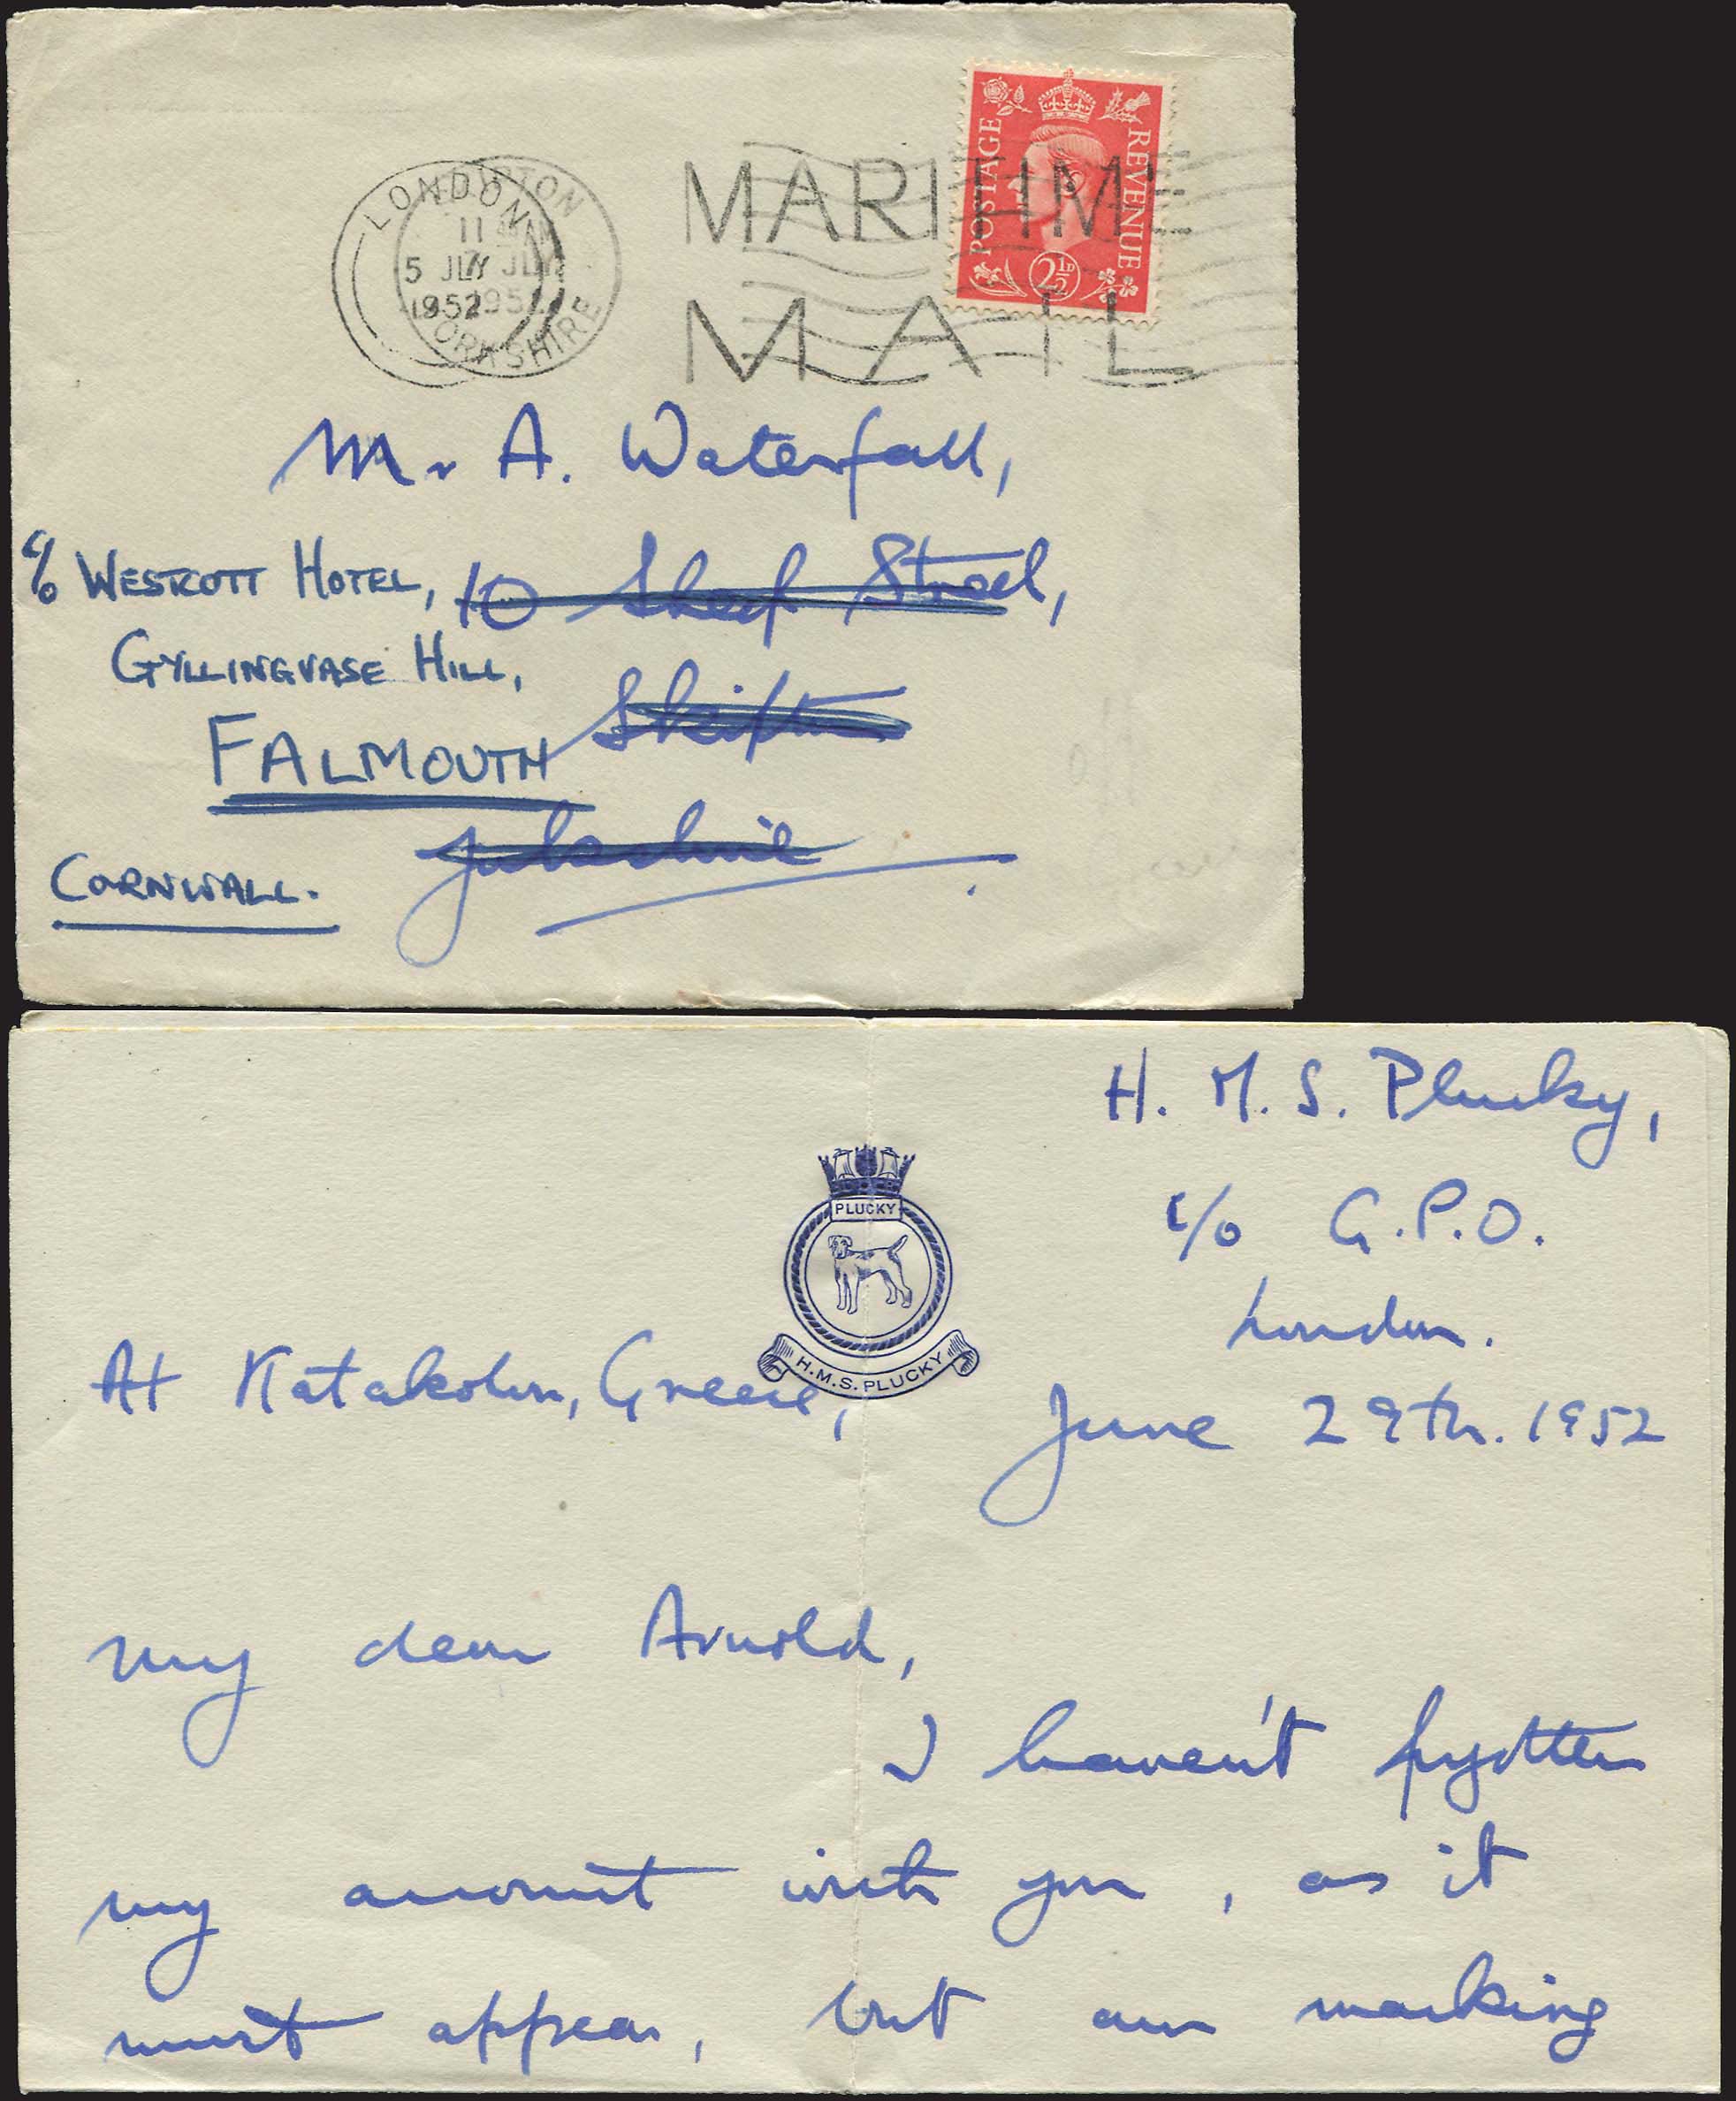 LONDON
SKIPTON
11
5 JLY
1952
7 JLY
1952
YORKSHIRE
MARITIME
MAIL
POSTAGE
REVENUE
2½D
Mr A. Waterfall,
c/o WESTCOTT HOTEL,
10 Sheep Street,
GYLLINGVASE HILL,
Skipton
FALMOUTH
Yorkshire
CORNWALL.
H. M. S. Plucky,
c/o G.P.O.
London.
PLUCKY
H.M.S. PLUCKY
At Katakolon, Greece,
June 29th. 1952
My dear Arnold,
I haven't forgotten
my account with you, as it
must appear, but am making